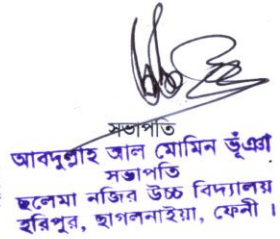 সভাপতি
আবদুল্লাহ আল মোমিন ভূঁঞা
সভাপতি
ছলেমা নজির উচ্চ বিদ্যালয়
হরিপুর, ছাগলনাইয়া, ফেনী ।